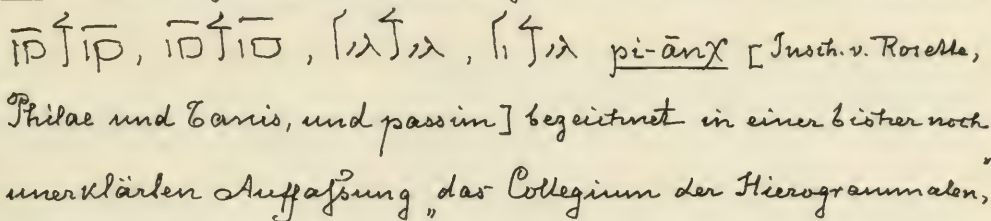 pi-ānχ [Insch. v. Rosette,
Philae und Tanis, und passim] bezeichnet in einer bisher noch
unerklärten Auffaſsung „das Collegium der Hierogrammaten,"